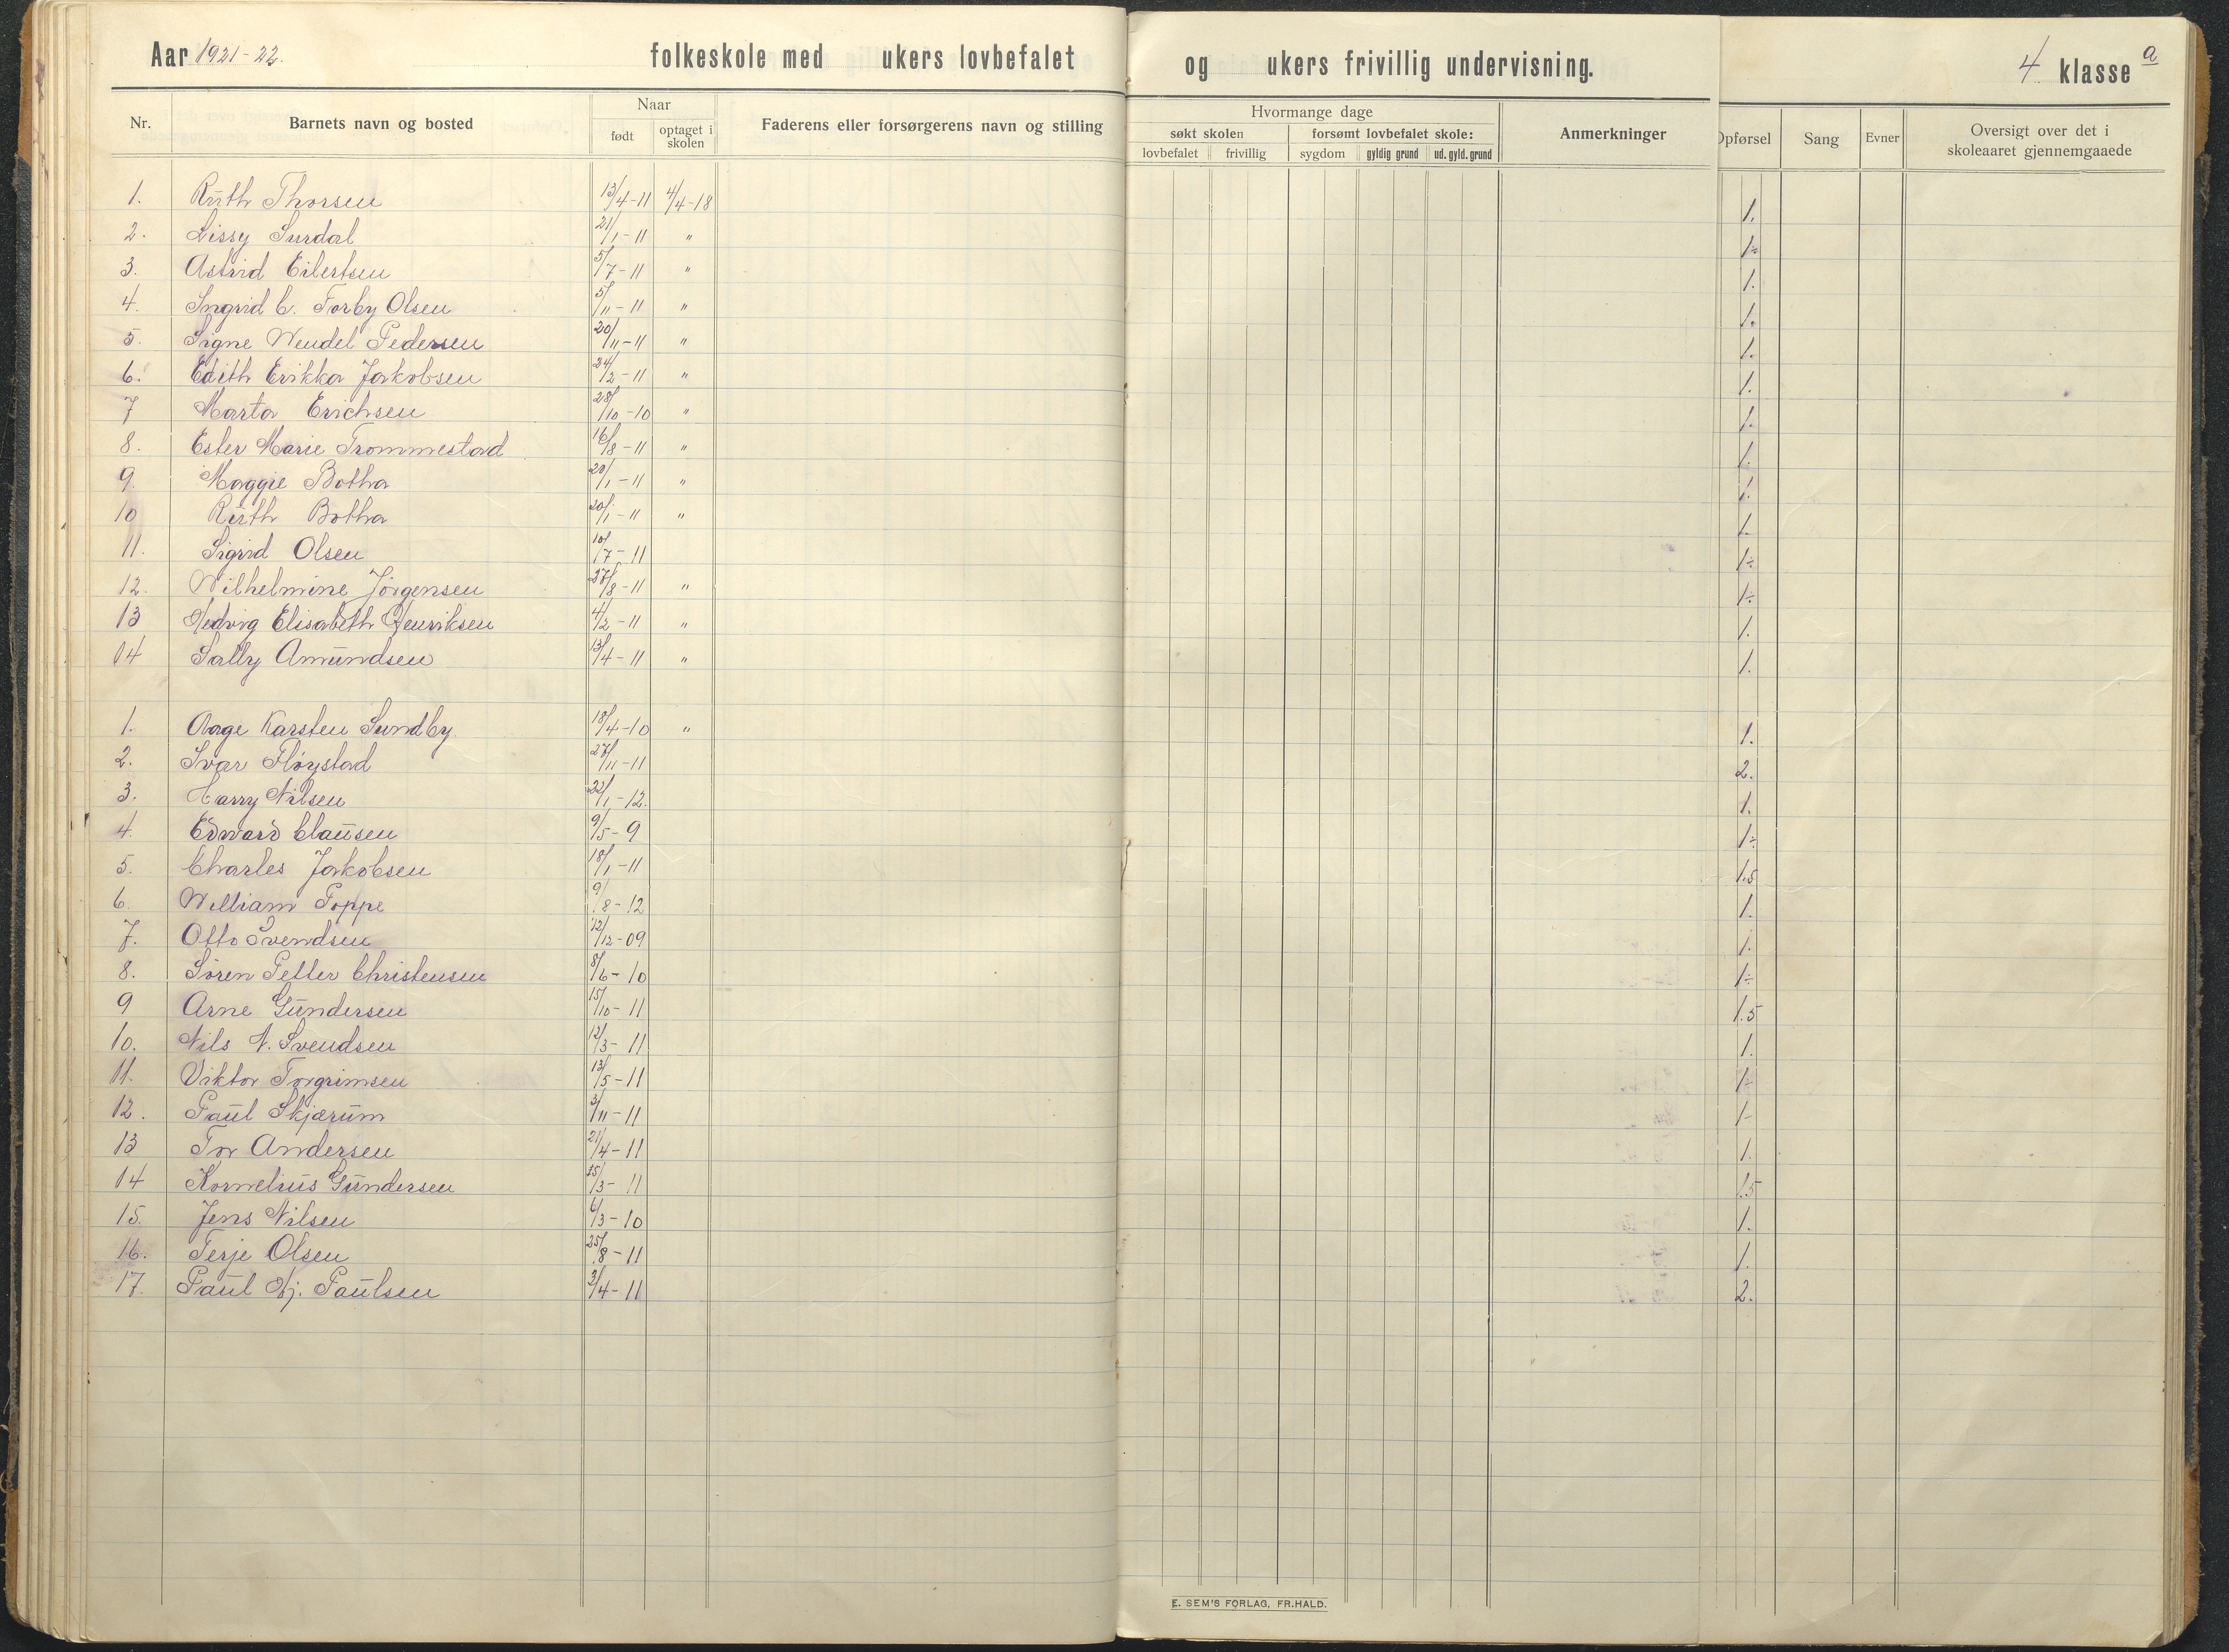 Aar 1921-22. folkeskole med ukers lovbefalet og ukers frivillig undervisning. 4 klasse a
Nr. Barnets navn og bosted Naar født optaget i skolen Faderens eller forsørgerens navn og stilling Hvormange dage søkt skolen lovbefalet frivillig forsømt lovbefalet skole: sygdom gyldig grund ud. gyld. grund Anmerkninger Opførsel Sang Evner Oversigt over det i skoleaaret gjennemgaaede
1. Ruth Thorsen 13/4-11 4/4-18 1.
2. Lissy Surdal 21/1-11 " 1÷
3. Astrid Eilertsen 5/7-11 " 1.
4. Ingrid C. Torby Olsen 5/11-11 " 1.
5. Signe Wendel Pedersen 20/11-11 " 1.
6. Edith Erikka Jakobsen 24/2-11 " 1.
7 Marta Erichsen 28/10-10 " 1.
8. Ester Marie Trommestad 16/8-11 " 1.
9. Maggie Botha 20/1-11 " 1.
10 Ruth Botha 20/1-11 " 1.
11. Sigrid Olsen 10/7-11 1÷
12. Wilhelmine Jörgensen 27/8-11 " 1÷
13 Hedvig Elisabeth Henriksen 4/2-11 " 1.
14 Sally Amundsen 13/4-11 " 1.
1. Aage Karsten Sundby 18/4-10 " 1.
2. Ivar Fløystad 27/11-11 2.
3. Harry Nilsen 22/1-12. 1.
4. Edward Clausen 9/5-9 1÷
5. Charles Jakobsen 18/1-11 1.5
6. William Poppe 9/8-12 1.
7. Otto Svendsen 12/12-09 1.
8. Sören Petter Christensen 8/6-10 1÷
9 Arne Gundersen 15/10-11 1.5
10. Nils N. Svendsen 12/3-11 1.
11. Viktor Torgrimsen 13/5-11 1÷
12. Paul Skjærum 3/11-11 1-
13 Tor Andersen 21/4-11 1.
14 Kornelius Gundersen 25/3-11 1.5
15. Jens Nilsen 6/3-10 1.
16. Terje Olsen 25/8-11 1.
17. Paul Paulsen 3/4-11 2.
E. SEM'S FORLAG, FR.HALD.